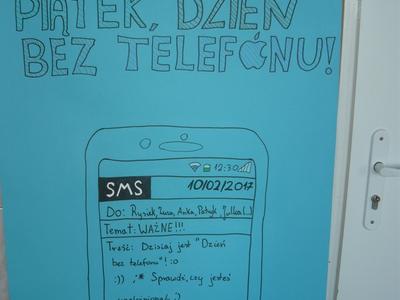 PIĄTEK, DZIEŃ
BEZ TELEFÓNU!
12:30
SMS 10/02/2017
Do: Rysiek, Zuza, Anka, Patryk, Julka (...)
Temat: WAŻNE!!!
Treść: Dzisiaj jest "Dzień
bez telefonu"! :o
:)) ;* Sprawdź, czy jesteś